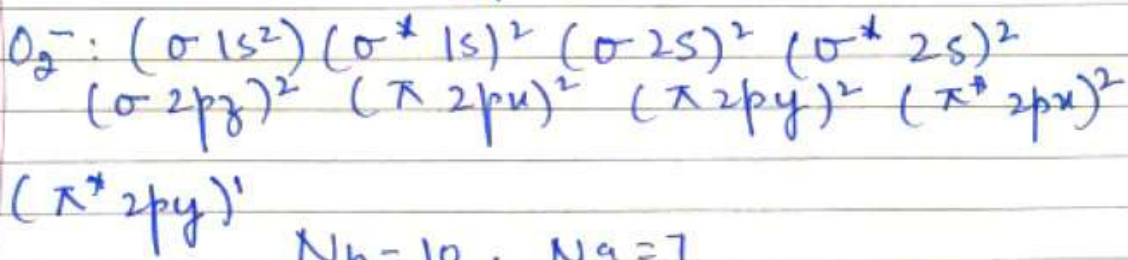 O₂⁻ : (σ 1s²) (σ* 1s)² (σ 2s)² (σ* 2s)²
(σ 2pz)² (π 2px)² (π 2py)² (π* 2px)²
(π* 2py)¹
Nb = 10, Na = 7